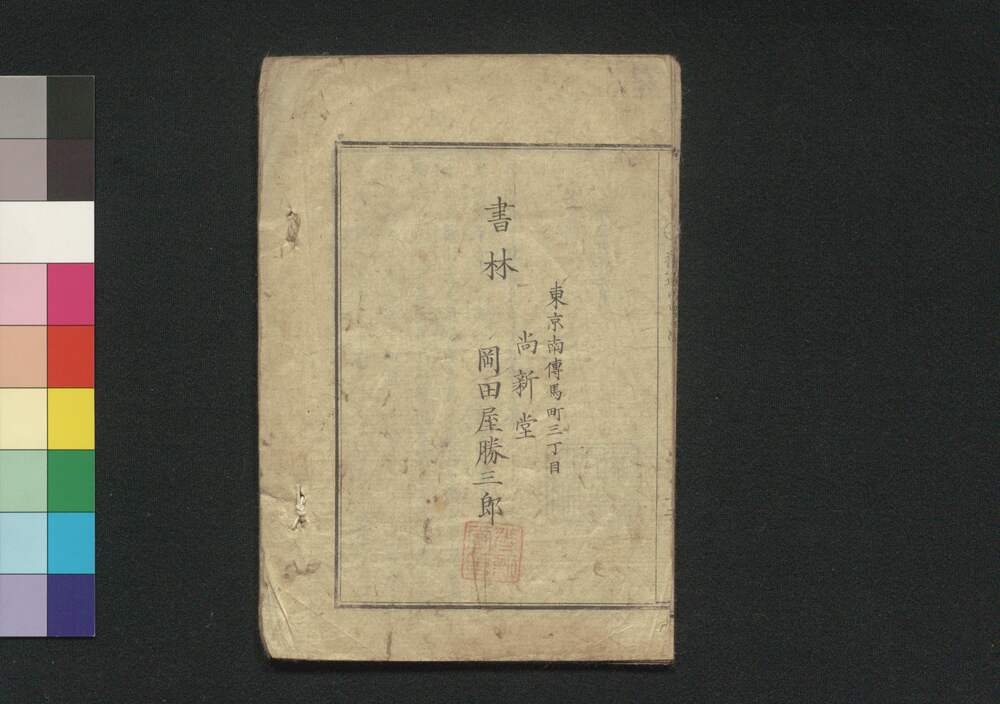 東京南傳馬町三丁目
尚新堂
書林 岡田屋勝三郎